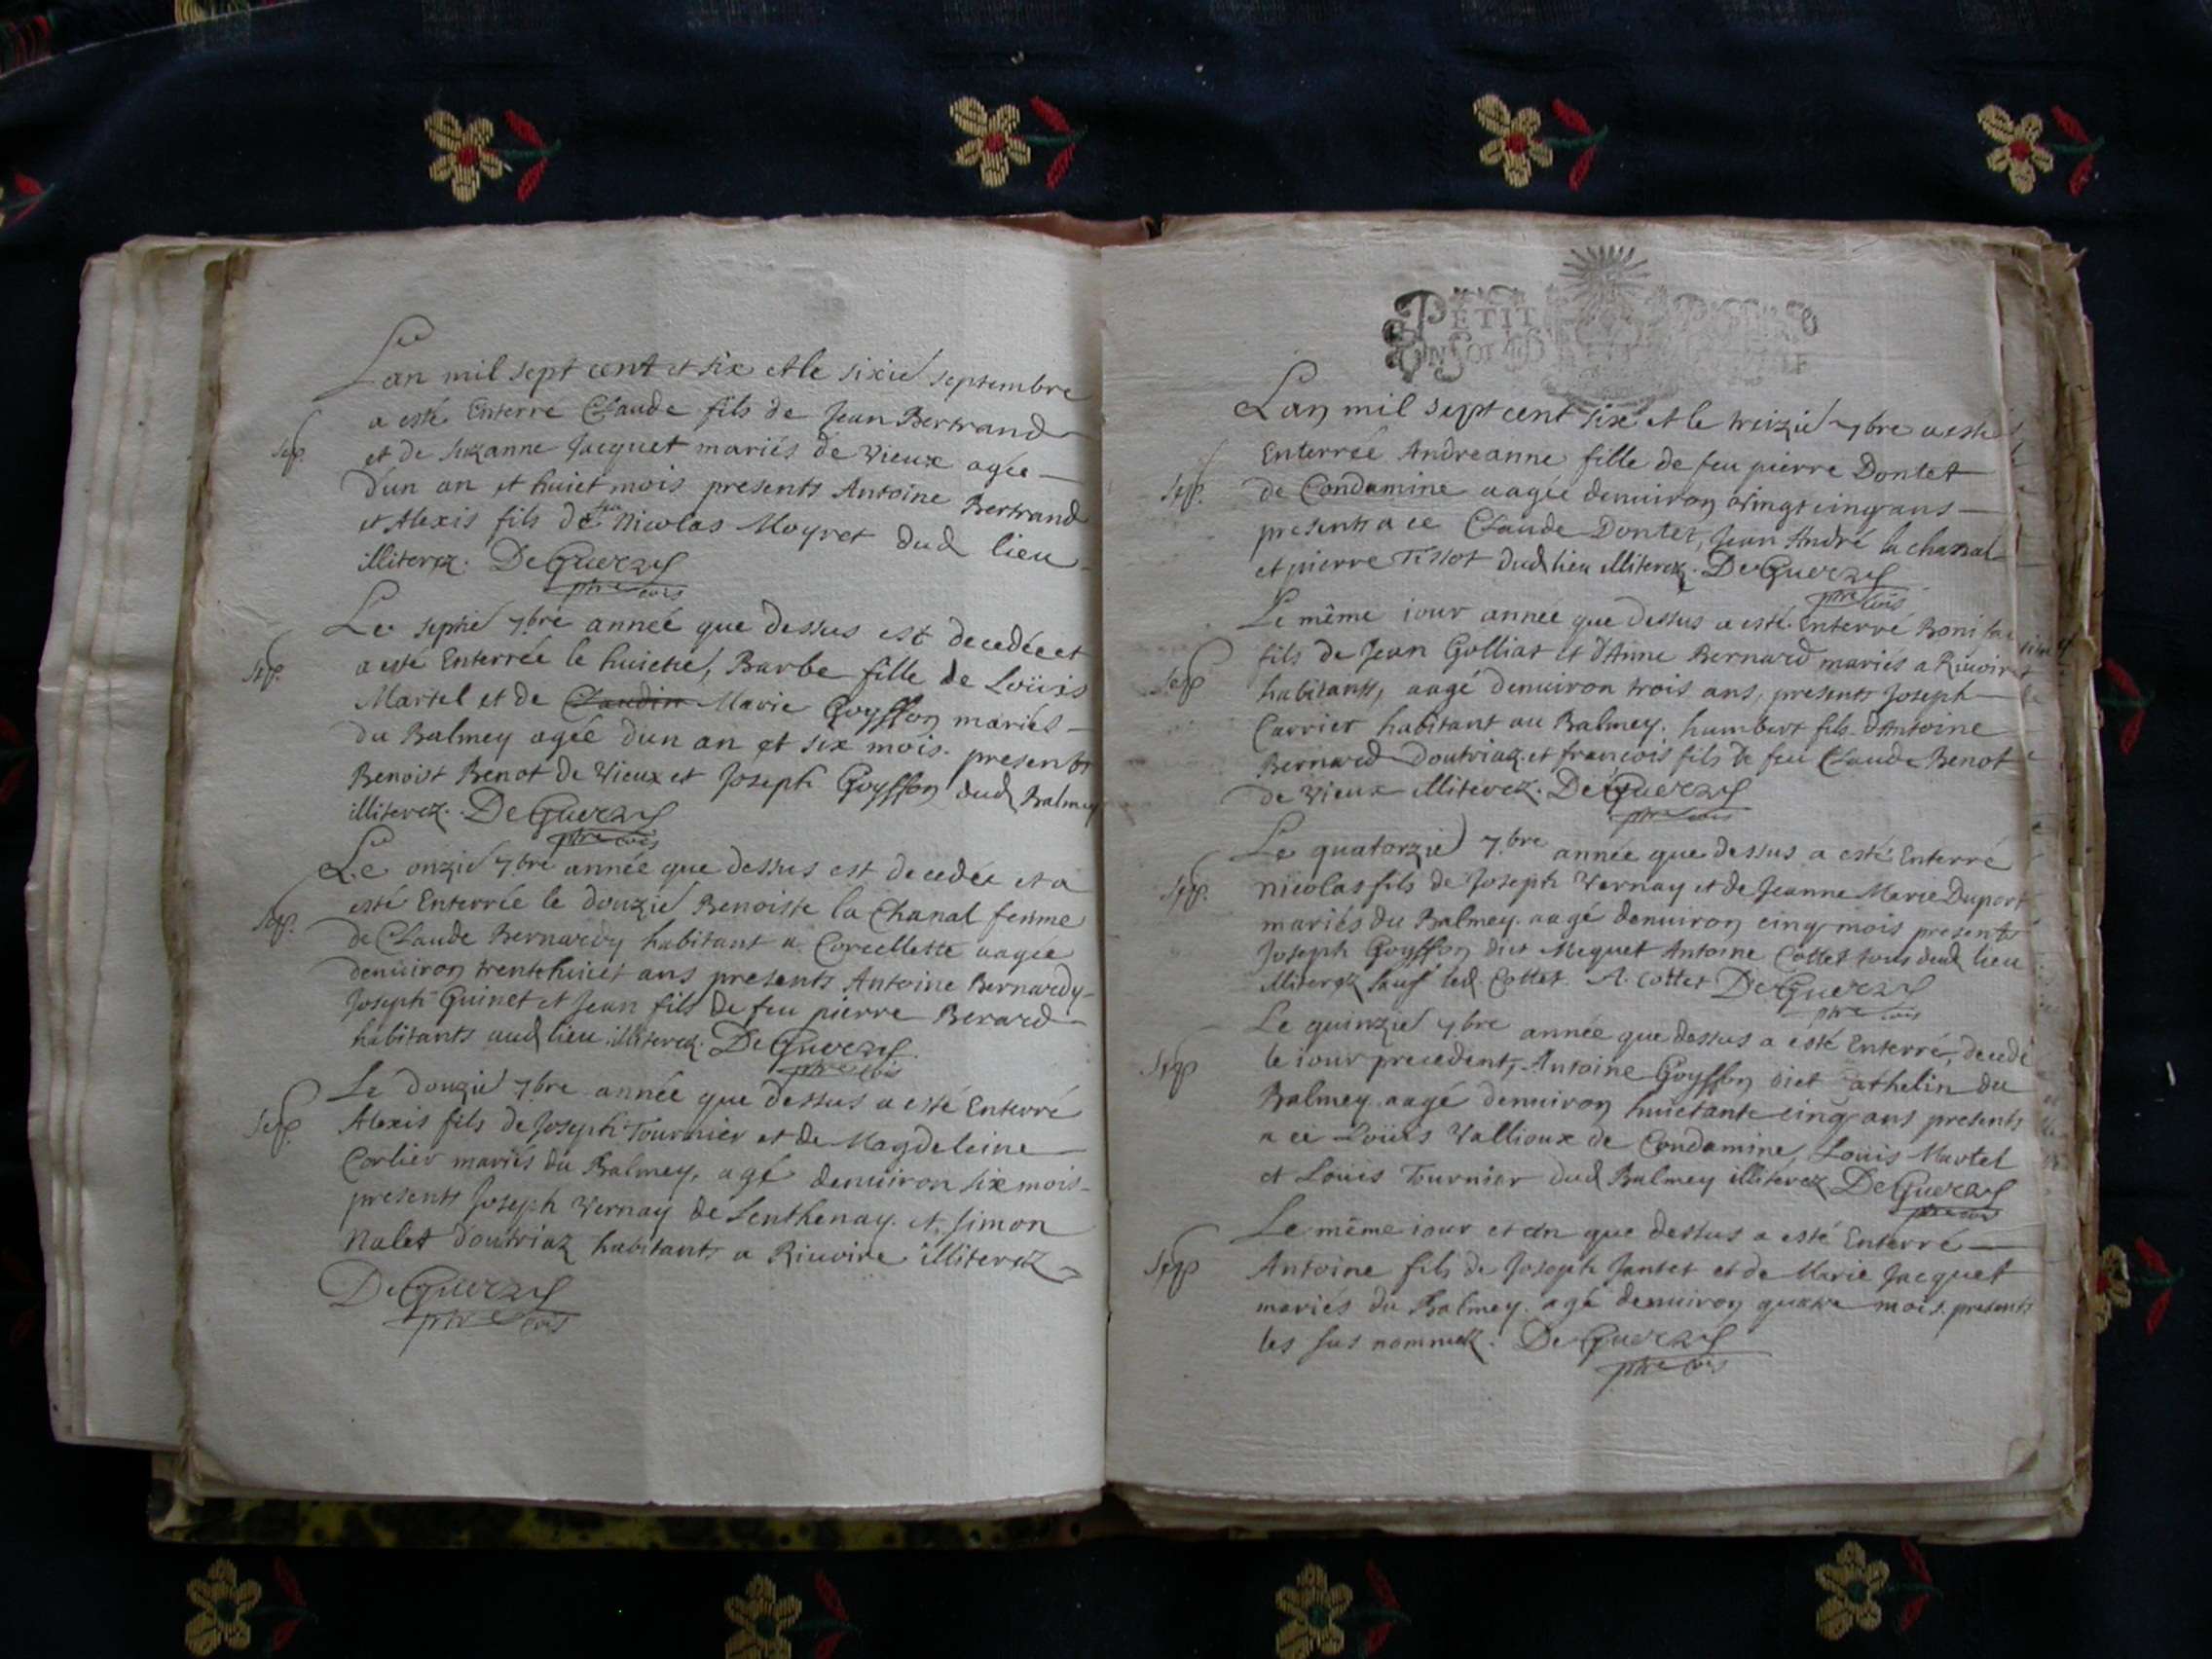 Lan mil sept cent et six et le sixie septembre
a esté Enterré Claude fils de Jean Bertrand
Sep.
et de Suzanne Jacquet mariés de Vieux agée
d'un an et huict mois presents Antoine Bertrand
et Alexis fils de feu Nicolas Moyret dud lieu
illiterez. DeGuerzy
ptre curé
Le septie 7.bre année que dessus est decedée et
Sep.
a esté Enterrée le huictie, Barbe fille de Loüis
Martel et de Claudin Marie Goyffon mariés
du Balmey agée dun an et six mois. presents
Benoist Benot de Vieux et Joseph Goyffon dud Balmey
illiterez. DeGuerzy
ptre curé
Le onzie 7.bre année que dessus est decedée et a
Sep.
esté Enterrée le douzie Benoiste la Chanal femme
de Claude Bernardy habitant a Corcellette aagée
denuiron trentehuict ans presents Antoine Bernardy
Joseph Guinet et Jean fils de feu pierre Berard
habitants aud lieu illiterez. DeGuerzy
ptre curé
Le douzie 7bre année que dessus a esté Enterré
Sep.
Alexis fils de Joseph Tournier et de Magdeleine
Corlier mariés du Balmey, agé denuiron six mois
presents Joseph Vernay de Lenthenay. et Simon
Nalet doutriaz habitants a Riuoire illiterez
DeGuerzy
ptre curé
PETIT PAPIER
UN SOL
Lan mil sept cent six et le treizie 7bre a esté
Enterrée Andreanne fille de feu pierre Dontet
Sep.
de Condamine aagée denuiron vingt cinq ans
presents a ce Claude Dontet, Jean André la chanal
et pierre Tissot dud lieu illiterez. DeGuerzy
ptre curé
Le même iour année que dessus a esté Enterré Boniface
fils de Jean Golliat et d'Anne Bernard mariés a Riuoire
Sep
habitants, aagé denuiron trois ans, presents Joseph
Carrier habitant au Balmey. humbert fils d'Antoine
Bernard doutriaz. et francois fils de feu Claude Benot
de Vieux illiterez. DeGuerzy
ptre curé
Le quatorzie 7.bre année que dessus a esté Enterré
Sep.
nicolas fils de Joseph Vernay et de Jeanne Marie Duport
mariés du Balmey. aagé denuiron cinq mois presents
Joseph Goyffon dict Meguet Antoine Cottet tous dud lieu
illiterez sauf led. Cottet. A. cottet DeGuerzy
ptre curé
Le quinzie 7.bre année que dessus a esté Enterré, decedé
Sep
le iour precedent, Antoine Goyffon dict athelin du
Balmey. aagé denuiron huictante cinq ans presents
a ce Loüis Vallioux de Condamine, Loüis Martel
et Loüis Tournier dud Balmey illiterez DeGuerzy
ptre curé
Le même iour et an que dessus a esté Enterré
Sep
Antoine fils de Joseph Jantet et de Marie Jacquet
mariés du Balmey. agé denuiron quatre mois. presents
les sus nommez. DeGuerzy
ptre curé